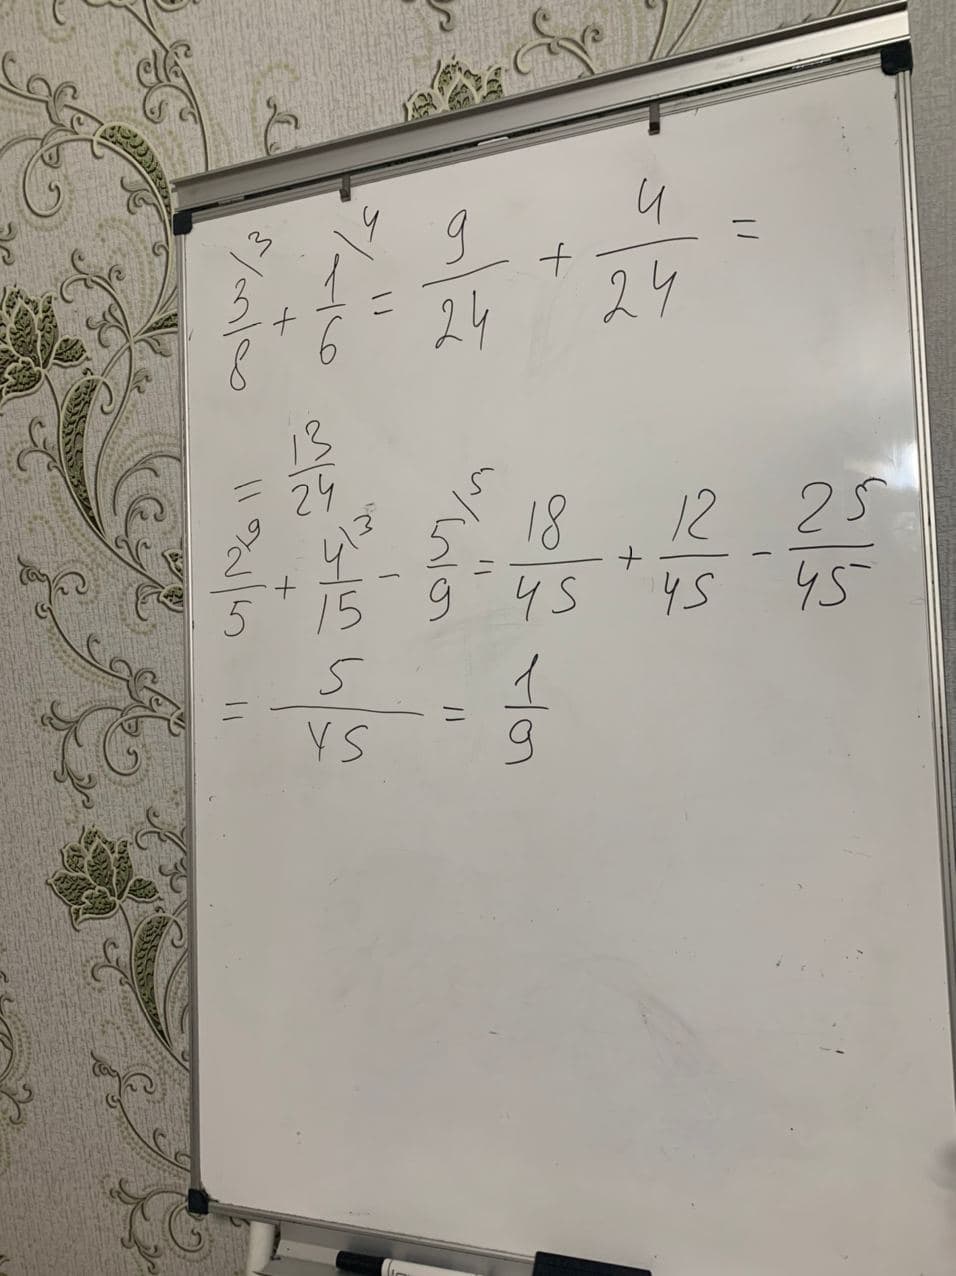 3/8 \3 + 1/6 \4 = 9/24 + 4/24 =
= 13/24
2/5 \9 + 4/15 \3 - 5/9 \5 = 18/45 + 12/45 - 25/45
= 5/45 = 1/9